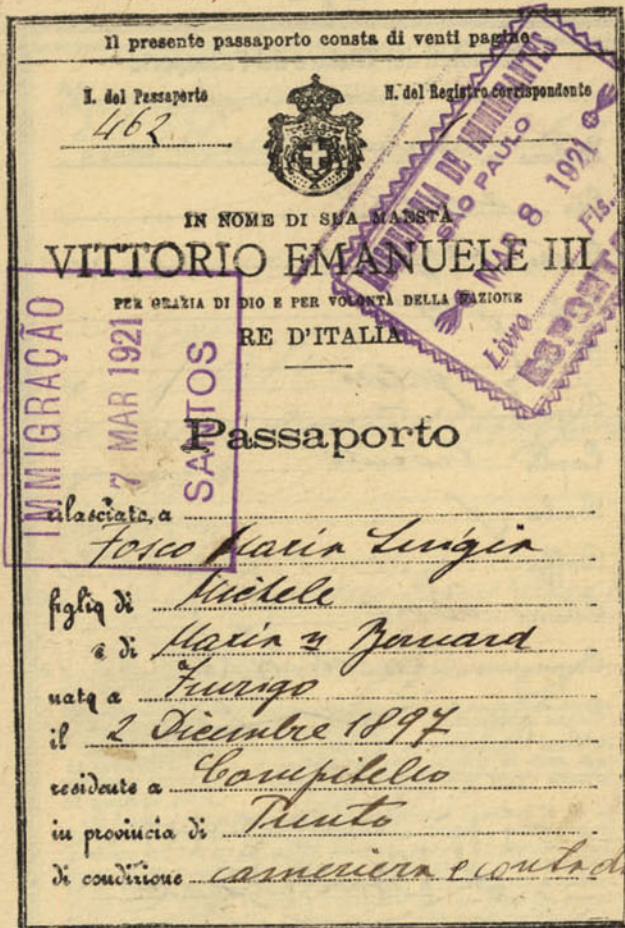 Il presente passaporto consta di venti pagine
N. del Passaporto
462
N. del Registro corrispondente
IN NOME DI SUA MAESTÀ
VITTORIO EMANUELE III
PER GRAZIA DI DIO E PER VOLONTÀ DELLA NAZIONE
RE D'ITALIA
Passaporto
rilasciato a
Fosco Maria Luigia
figlia di Michele
e di Maria
nata a
il 2 Dicembre 1897
residente a Campitello
in provincia di Trento
di condizione cameriera e
IMMIGRAÇÃO
7 MAR 1921
SANTOS
DE IMMIGRANTES
SÃO PAULO
MAR 8 1921
Livro Fls.